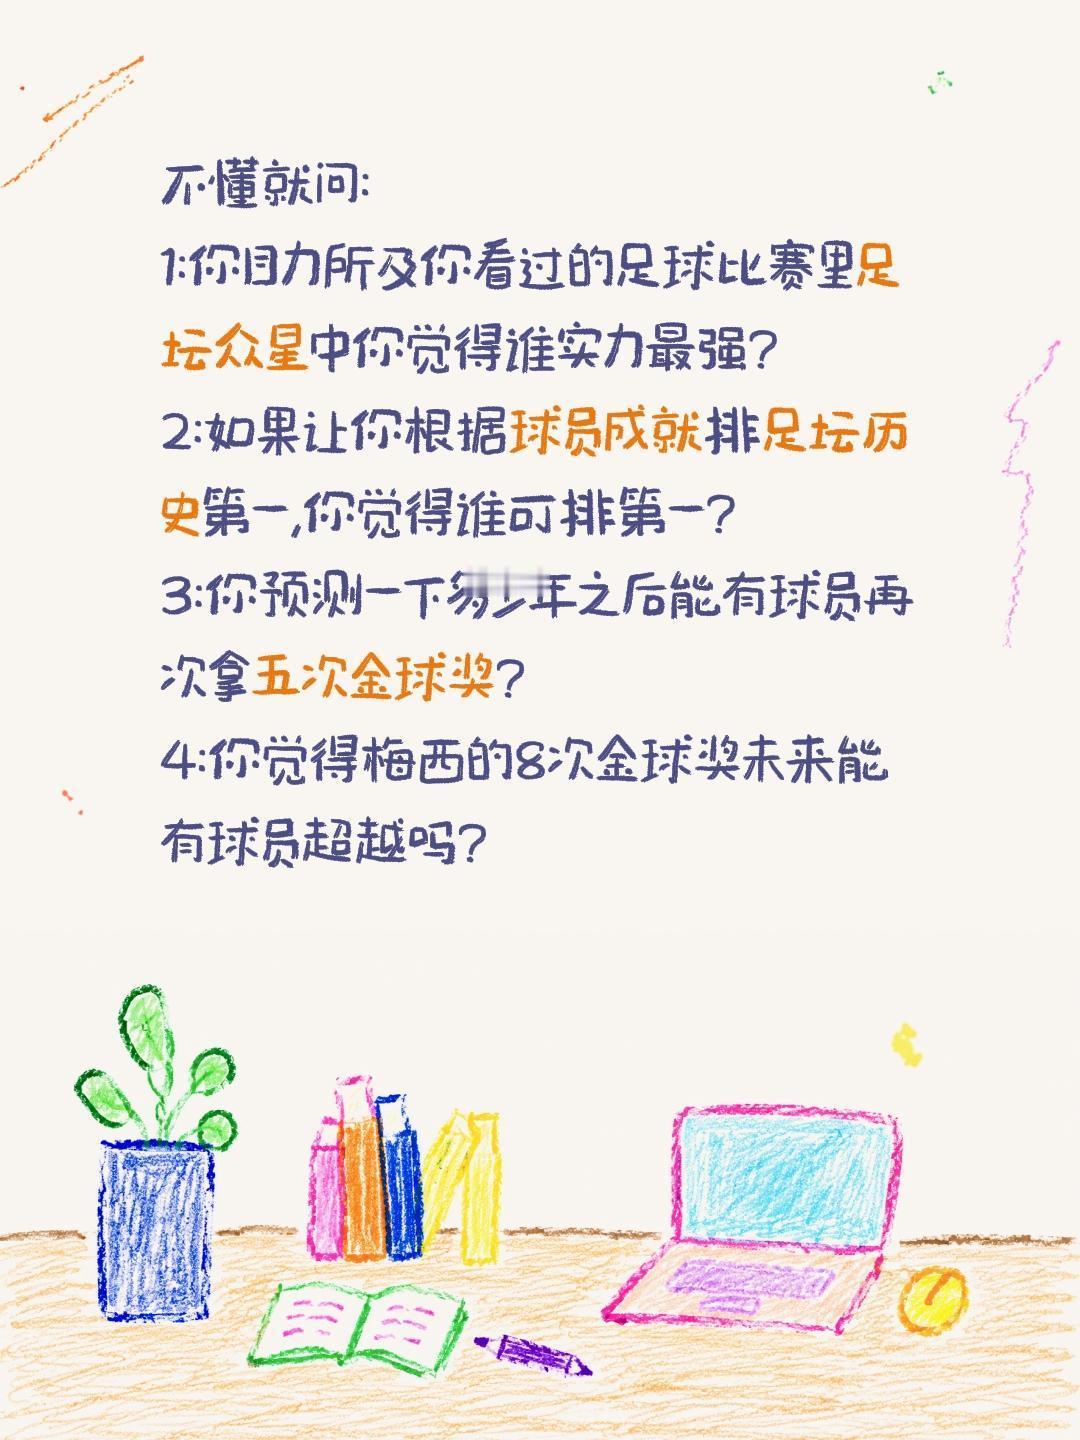 不懂就问:
1:你目力所及你看过的足球比赛里足
坛众星中你觉得谁实力最强?
2:如果让你根据球员成就排足坛历
史第一,你觉得谁可排第一?
3:你预测一下多少年之后能有球员再
次拿五次金球奖?
4:你觉得梅西的8次金球奖未来能
有球员超越吗?